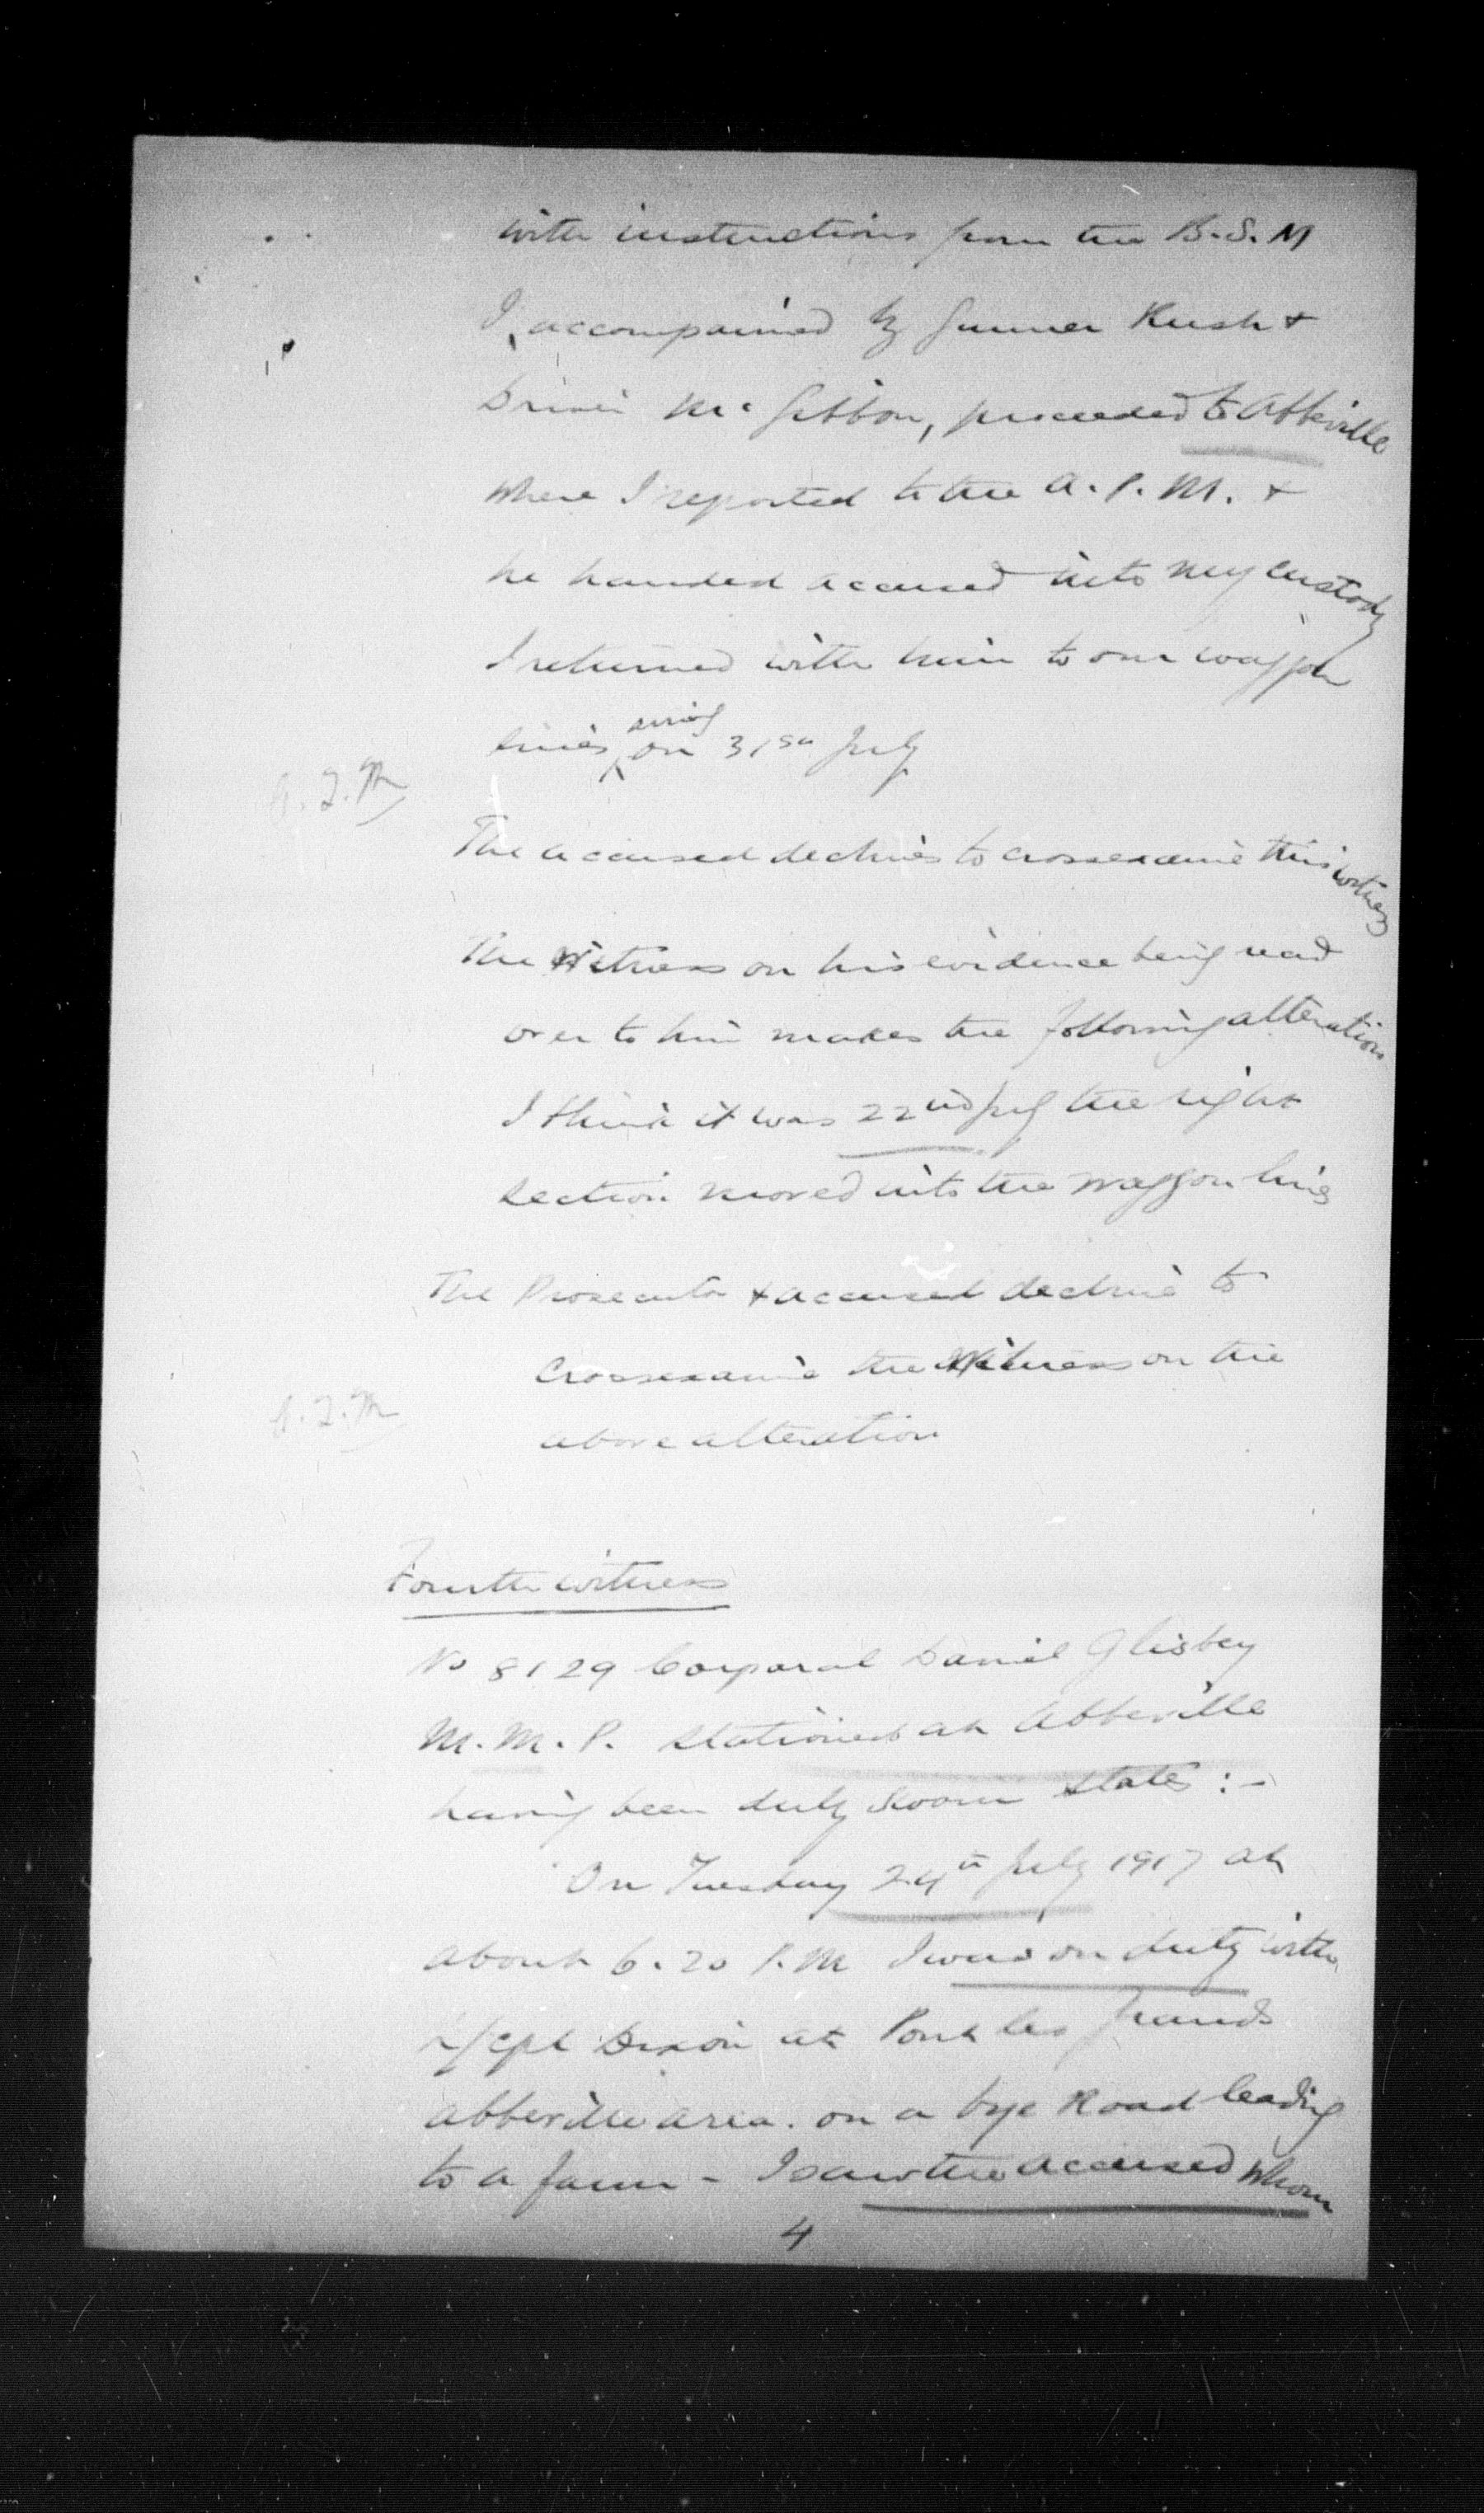 with instructions from the B.S.M
I, accompanied by Gunner Rush &
Driver McGibbon, proceeded to Abbeville
where I reported to the A.P.M. &
he handed accused into my custody
I returned with him to our waggon
lines on 31st July
The accused declines to crossexamine this witness
The Witness on his evidence being read
over to him makes the following alteration
I think it was 22nd July the right
section moved into the waggon lines
The Prosecutor & accused decline to
crossexamine the Witness on the
above alteration
Fourth witness
No 8129 Corporal Daniel Glisbey
M.M.P. stationed at Abbeville
having been duly sworn states :-
On Tuesday 24th July 1917 at
about 6.20 P.M I was on duty with
L/Cpl Dixon at Pont les
Abbeville area. on a bye Road leading
to a farm - I saw the accused whom
4